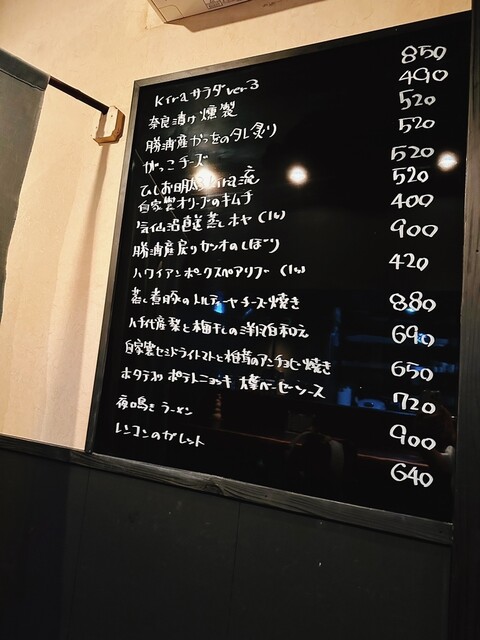 Kiraサラダver3 850
奈良漬け燻製 490
勝浦産かつをのタレ炙り 520
がっこチーズ 520
ひしお明太 kira流 520
自家製オリーブのキムチ 520
気仙沼直送蒸しホヤ(1ヶ) 400
勝浦産戻りカツオのしぼり 900
ハワイアンポークスペアリブ(1ヶ) 420
蒸し煮豚のトルティーヤチーズ焼き 880
八千代産梨と梅干しの洋風白和え 690
自家製セミドライトマトと椎茸のアンチョビー焼き 650
ホタテ入りポテトニョッキ 燻ベーゼーソース 720
夜鳴き ラーメン 900
レンコンのガレット 640